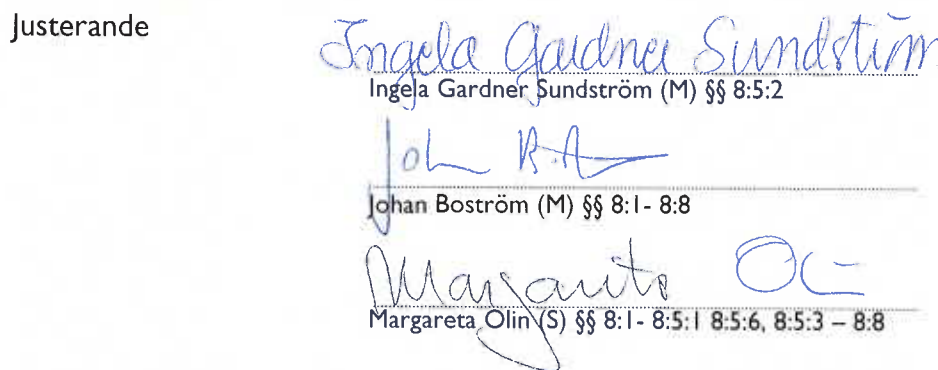 Justerande
Ingela Gardner Sundström
Ingela Gardner Sundström (M) §§ 8:5:2
Johan Boström (M) §§ 8:1- 8:8
Margareta Olin
Margareta Olin (S) §§ 8:1- 8:5:1 8:5:6, 8:5:3 – 8:8